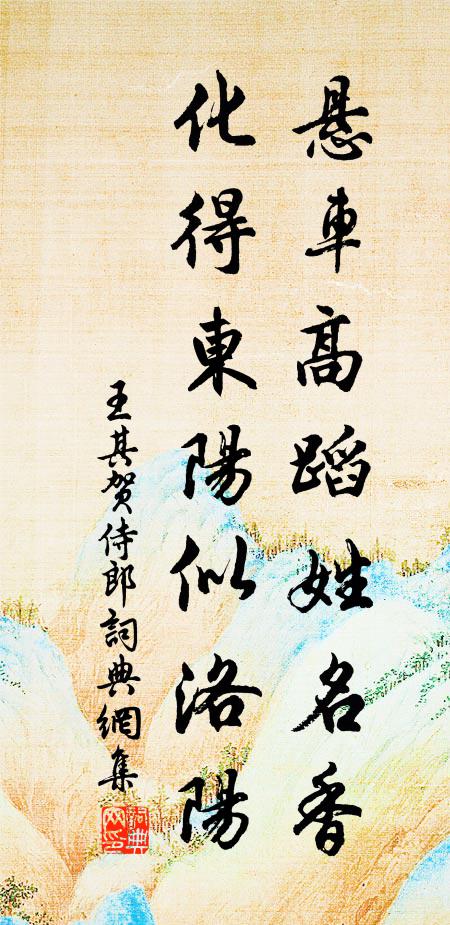 悬車高蹈姓名香
化得東陽似洛陽
王其賀侍郎詞典網集
詞典
网印